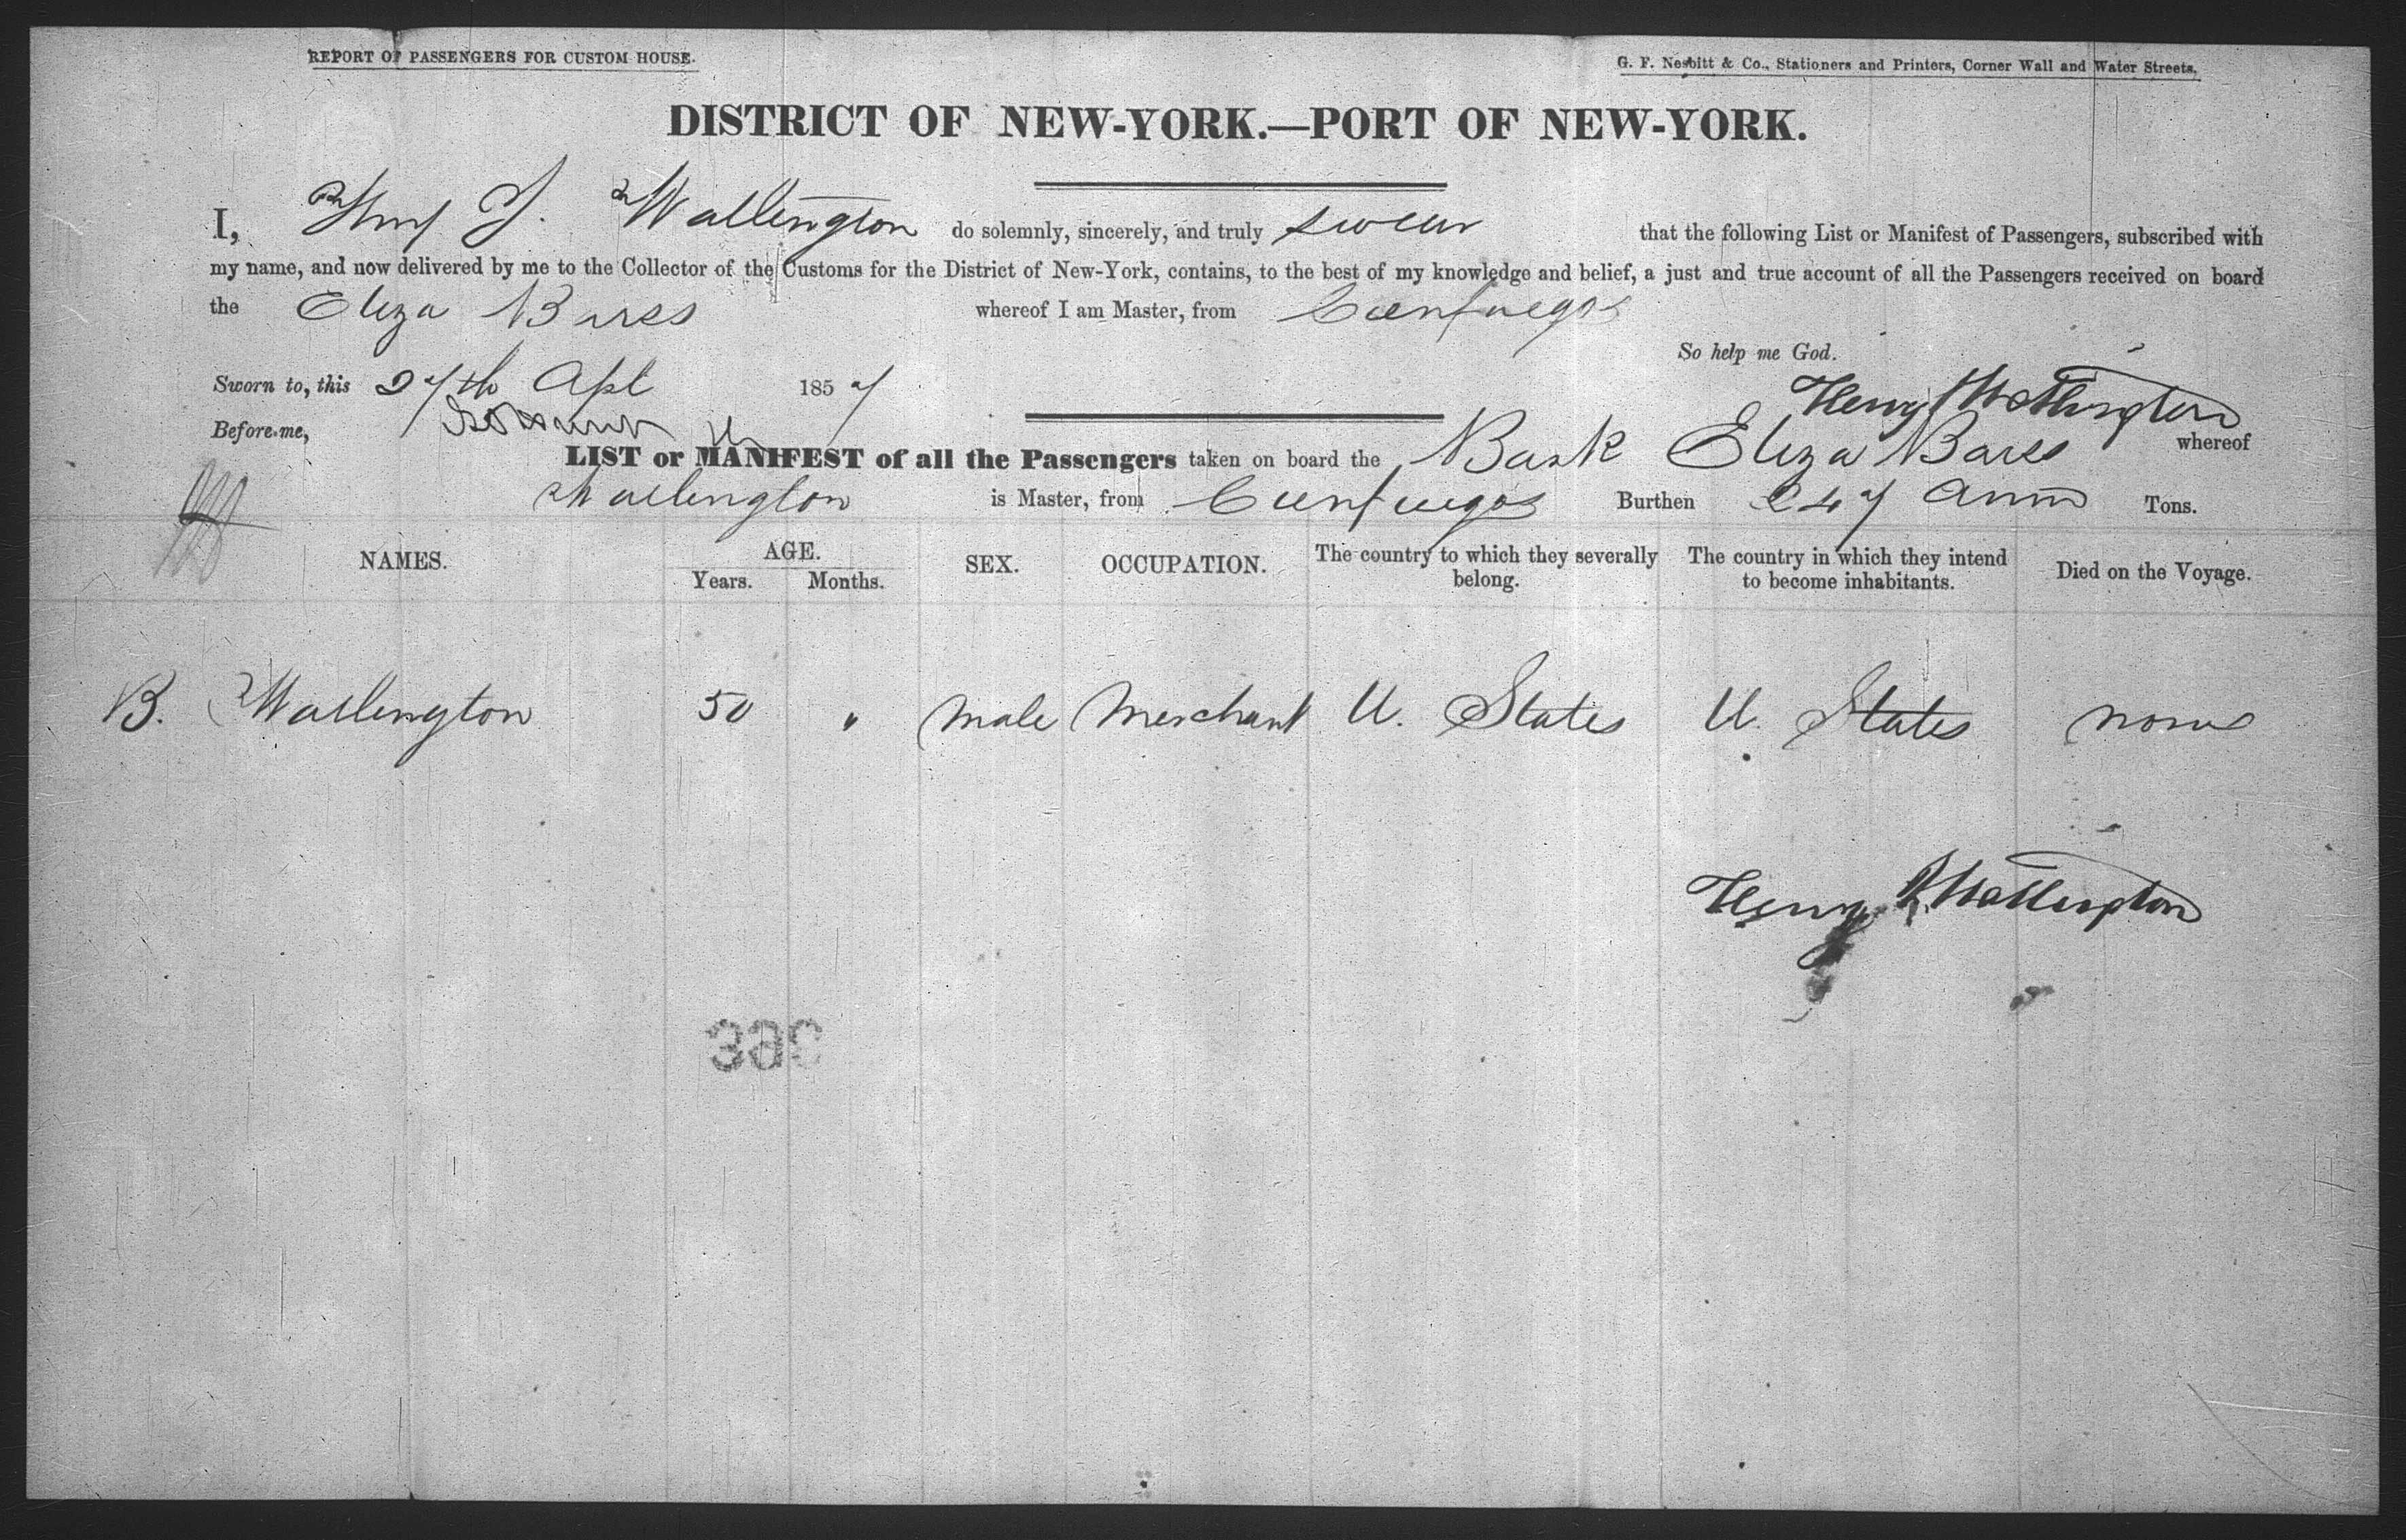 REPORT OF PASSENGERS FOR CUSTOM HOUSE.
G. F. Nesbitt & Co., Stationers and Printers, Corner Wall and Water Streets.
DISTRICT OF NEW-YORK.—PORT OF NEW-YORK.
I, Wallington do solemnly, sincerely, and truly swear that the following List or Manifest of Passengers, subscribed with
my name, and now delivered by me to the Collector of the Customs for the District of New-York, contains, to the best of my knowledge and belief, a just and true account of all the Passengers received on board
the Eliza Barss whereof I am Master, from Cienfuegos
So help me God.
Sworn to, this 27th Apl 1857
Henry Wallington
Before me,
LIST or MANIFEST of all the Passengers taken on board the Bark Eliza Barss whereof
Wallington is Master, from Cienfuegos Burthen 247 Tons.
NAMES. AGE. Years. Months. SEX. OCCUPATION. The country to which they severally belong. The country in which they intend to become inhabitants. Died on the Voyage.
B. Wallington 50 " Male Merchant U. States U. States none
Henry Wallington